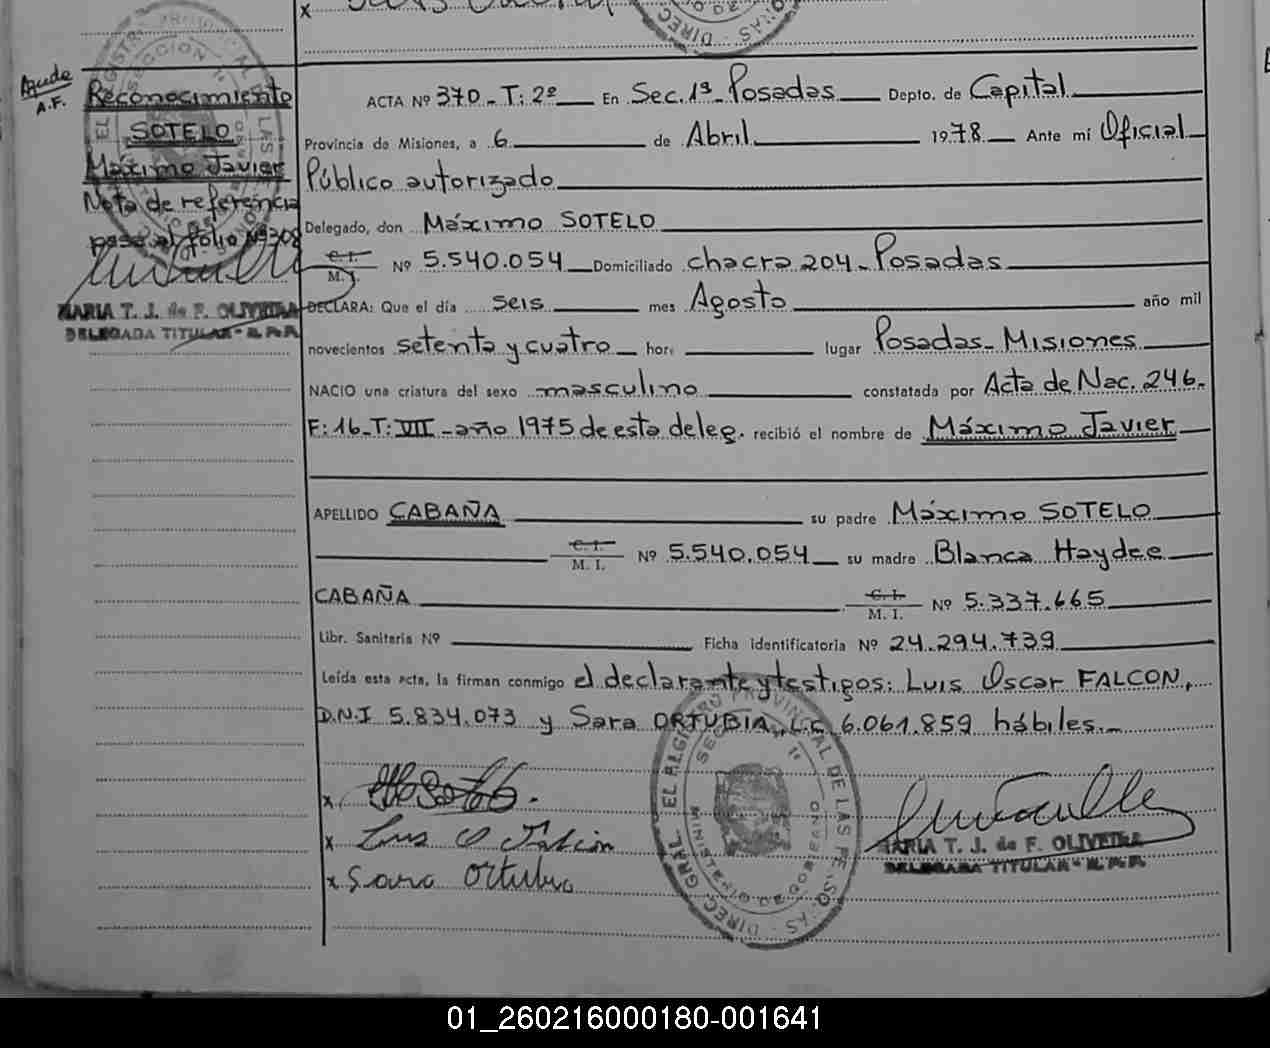 Reconocimiento
SOTELO
Máximo Javier
Nota de referencia
pasa al folio Nº 308
MARIA T. J. de F. OLIVEIRA
DELEGADA TITULAR - R. P. P.
A.F.
ACTA Nº 370 - T: 2º En Sec. 1ª Posadas Depto. de Capital
Provincia de Misiones, a 6 de Abril 1978 Ante mí Oficial
Público autorizado
Delegado, don Máximo SOTELO
C. I.
M. I. Nº 5.540.054 Domiciliado chacra 204 - Posadas
DECLARA: Que el día seis mes Agosto año mil
novecientos setenta y cuatro hora lugar Posadas - Misiones
NACIO una criatura del sexo masculino constatada por Acta de Nac. 246.
F: 16 - T: VII - año 1975 de esta deleg. recibió el nombre de Máximo Javier
APELLIDO CABAÑA su padre Máximo SOTELO
C. I.
M. I. Nº 5.540.054 su madre Blanca Haydee
CABAÑA C. I.
M. I. Nº 5.337.665
Libr. Sanitaria Nº Ficha identificatoria Nº 24.294.739
Leída esta acta, la firman conmigo el declarante y testigos: Luis Oscar FALCON,
D.N.I 5.834.073 y Sara ORTUBIA, L.C 6.061.859 hábiles.
x
x Luis O Falcon
x Sara Ortubia
MARIA T. J. de F. OLIVEIRA
DELEGADA TITULAR - R. P. P.
01_260216000180-001641